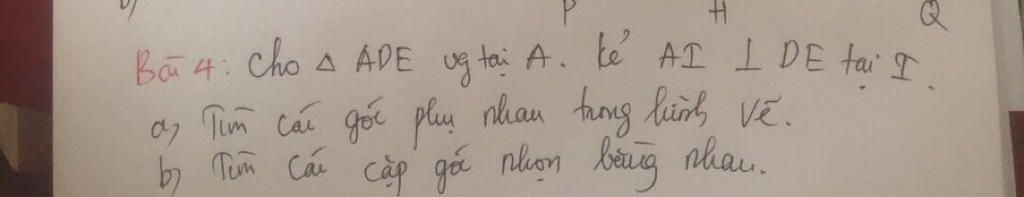 P H Q
Bài 4: Cho △ ADE vg tại A. kẻ AI ⊥ DE tại I.
a) Tìm các góc phụ nhau trong hình vẽ.
b) Tìm các cặp góc nhọn bằng nhau.